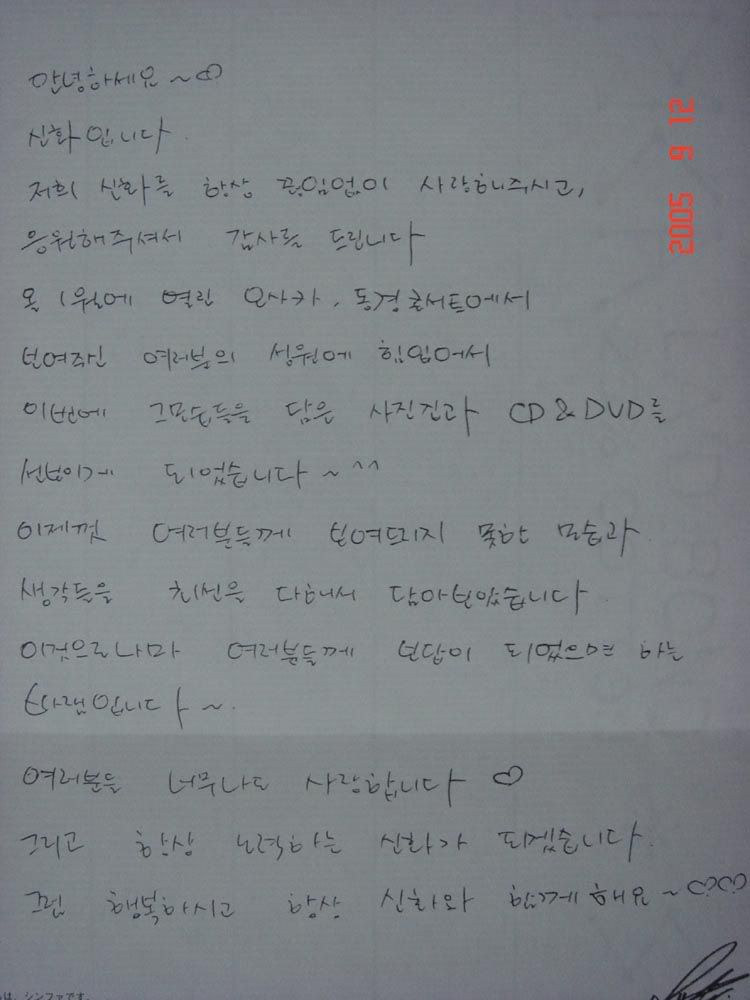 안녕하세요~♡
신화입니다.
저희 신화를 항상 끊임없이 사랑해주시고,
응원해주셔서 감사를 드립니다
올 1월에 열린 오사카, 동경콘서트에서
보여주신 여러분의 성원에 힘입어서
이번에 그모습들을 담은 사진집과 CD & DVD를
선보이게 되었습니다~^^
이제껏 여러분들께 보여드리지 못한 모습과
생각들을 최선을 다해서 담아보았습니다
이것으로나마 여러분들께 보답이 되었으면 하는
바램입니다~.
여러분을 너무나도 사랑합니다♡
그리고 항상 노력하는 신화가 되겠습니다.
그럼 행복하시고 항상 신화와 함께해요~♡♡♡
は、シンファです。
2005 9 12